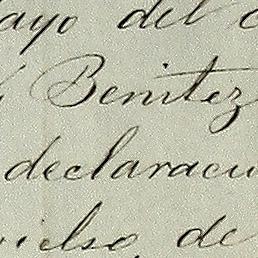 ayo del
Benitez
declaracu
de